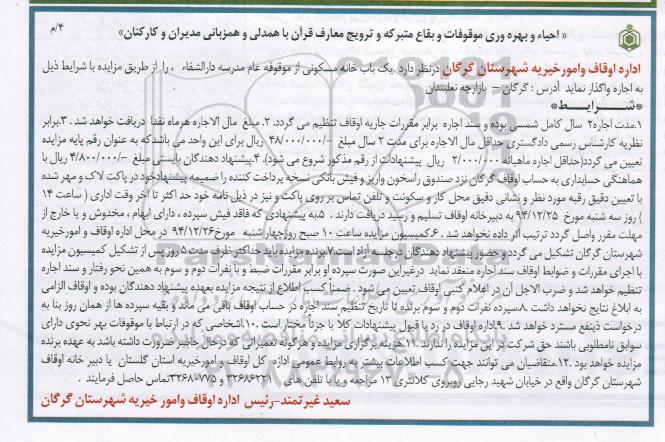 « احیاء و بهره وری موقوفات و بقاع متبرکه و ترویج معارف قرآن با همدلی و همزبانی مدیران و کارکنان»
۴/م
اداره اوقاف وامورخیریه شهرستان گرگان درنظر دارد یک باب خانه مسکونی از موقوفه عام مدرسه دارالشفاء ، را از طریق مزایده با شرایط ذیل
به اجاره واگذار نماید آدرس : گرگان – بازارچه نعلبندان
*شـــرایـــط*
۱.مدت اجاره۲ سال کامل شمسی بوده و سند اجاره برابر مقررات جاریه اوقاف تنظیم می گردد.۲. مبلغ مال الاجاره همراه نقدا دریافت خواهد شد .۳.برابر
نظریه کارشناس رسمی دادگستری حداقل مال الاجاره برای مدت ۲ سال مبلغ –/۴۸/۰۰۰/۰۰۰ ریال برای این واحد می باشدکه به عنوان رقم پایه مزایده
تعیین می گردد(حداقل اجاره ماهیانه ۲/۰۰۰/۰۰۰ ریال پیشنهادات از رقم مذکور شروع می شود). ۴.پیشنهاد دهندگان بایستی مبلغ –/۴/۸۰۰/۰۰۰ ریال با
هماهنگی حسابداری به حساب اوقاف گرگان نزد صندوق راسخون واریز و فیش بانکی نسخه پرداخت کننده را ضمیمه پیشنهادخود در پاکت لاک و مهر شده
با تعیین دقیق رقبه مورد نظر و نشانی دقیق محل کار و سکونت و تلفن تماس بر روی پاکت و نیز در ذیل نامه خود حد اکثر تا آخر وقت اداری ( ساعت ۱۴
) روز سه شنبه مورخ ۹۴/۱۲/۲۵ به دبیرخانه اوقاف تسلیم و رسید دریافت دارند . ۵.به پیشنهادی که فاقد فیش سپرده ، دارای ابهام ، مخدوش و یا خارج از
مهلت مقرر واصل گردد ترتیب اثر داده نخواهد شد .۶.کمیسیون مزایده ساعت ۱۰ صبح روزچهارشنبه مورخ۹۴/۱۲/۲۶ در محل اداره اوقاف و امورخیریه
شهرستان گرگان تشکیل می گردد وحضور پیشنهاد دهندگان درجلسه آزاد است.۷.برنده مزایده باید حداکثر ظرف مدت ۵ روز پس از تشکیل کمیسیون مزایده
با اجرای مقررات و ضوابط اوقاف سند اجاره منعقد نماید درغیراین صورت سپرده او برابر مقررات ضبط و با نفرات دوم و سوم به همین نحو رفتار و سند اجاره
تنظیم خواهد شد و ضرب الاجل آن در اعلام کتبی اوقاف تعیین می شود . ضمناً کسب اطلاع از نتیجه مزایده بعهده پیشنهاد دهندگان بوده و اوقاف الزامی
به ابلاغ نتایج نخواهد داشت .۸.سپرده نفرات دوم و سوم برنده تا تاریخ تنظیم سند اجاره در حساب اوقاف باقی می ماند و بقیه سپرده ها از همان روز بنا به
درخواست ذینفع مسترد خواهد شد .۹.اداره اوقاف در رد یا قبول پیشنهادات کلا یا جزأ مختار است .۱۰.اشخاصی که در ارتباط با موقوفات بهر نحوی دارای
سوابق نامطلوبی باشند حق شرکت در این مزایده را ندارند .۱۱.هزینه برگزاری مزایده و هرگونه تعمیراتی که درحال حاضر ضرورت داشته باشد به عهده برنده
مزایده خواهد بود .۱۲.متقاضیان می توانند جهت کسب اطلاعات بیشتر به روابط عمومی اداره کل اوقاف و امورخیریه استان گلستان یا دبیر خانه اوقاف
شهرستان گرگان واقع در خیابان شهید رجایی روبروی کلانتری ۱۳ مراجعه و یا با تلفن های ۳۲۶۸۶۳۲۱ و ۳۲۶۸۰۷۷۵تماس حاصل فرمایند .
سعید غیرتمند-رئیس اداره اوقاف وامور خیریه شهرستان گرگان